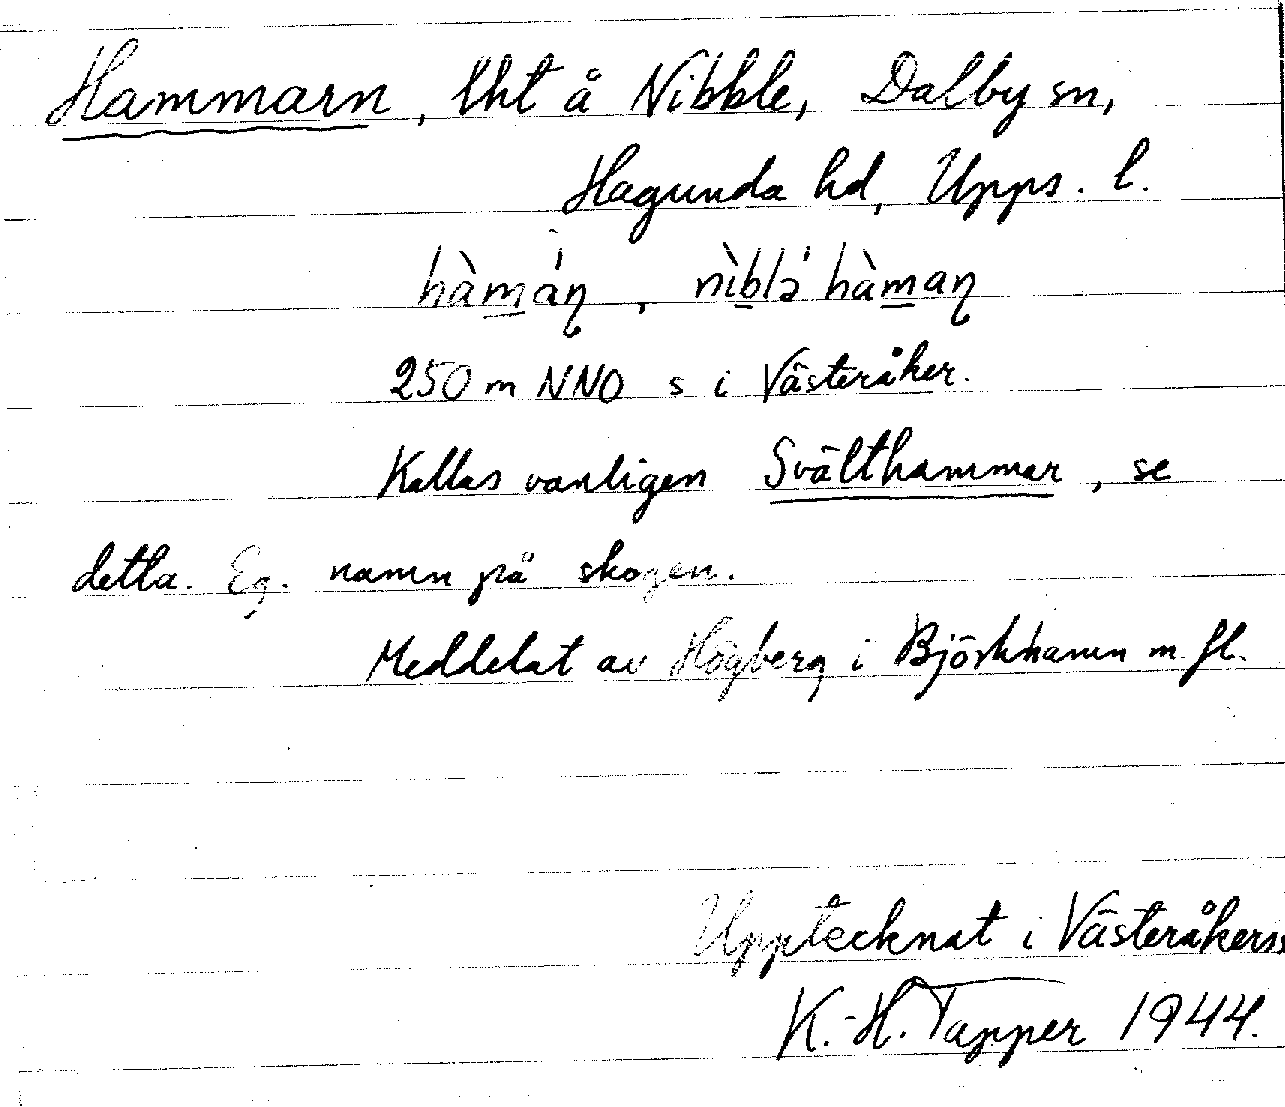 Hammarn, lht å Nibble, Dalby sn,
Hagunda hd, Upps. l.
hàmáƞ, nìblə́ hàmaƞ
250 m NNO s i Västeråker.
Kallas vanligen Svälthammar, se
detta. Eg. namn på skogen.
Meddelat av Högberg i Björkhamn m fl.
Upptecknat i Västeråkers s
K.-H. Tapper 1944.